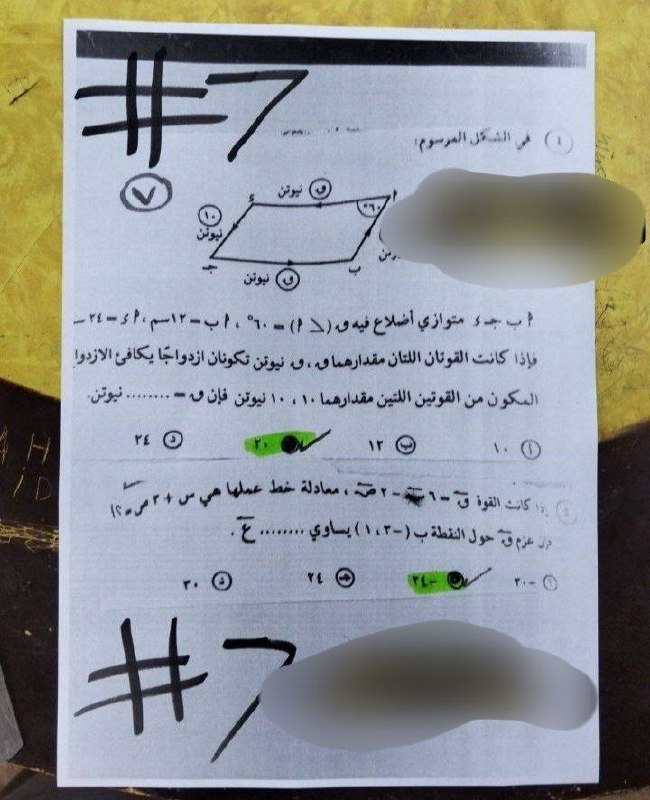 #7
٤ في الشكل المرسوم:
٧
ق نيوتن
١٠
نيوتن
°٦٠
أ
ء
جـ
ب
ق نيوتن
أ ب جـ ء متوازي أضلاع فيه ق (∠ أ) = ٦٠° ، أ ب = ١٢سم ، أ ء = ٢٤
فإذا كانت القوتان اللتان مقدارهما ق ، ق نيوتن تكونان ازدواجًا يكافئ الازدوا
المكون من القوتين اللتين مقدارهما ١٠ ، ١٠ نيوتن فإن ق = ........ نيوتن.
أ ١٠ ب ١٢ ٢٠ د ٢٤
٥ إذا كانت القوة ق = ٦ س - ٢ ص ، معادلة خط عملها هي س + ٣ ص = ٢
فإن عزم ق حول النقطة ب (-٣ ، ١) يساوي ........ ع .
أ -٣٠ -٢٤ جـ ٢٤ د ٣٠
#7